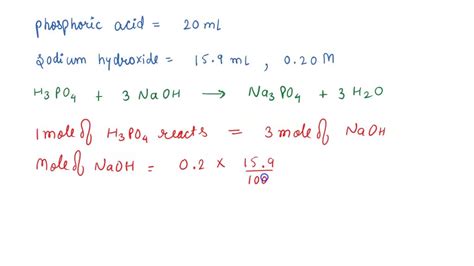 phosphoric acid = 20 mL
Sodium hydroxide = 15.9 mL , 0.20 M
H3PO4 + 3 NaOH → Na3PO4 + 3 H2O
1 mole of H3PO4 reacts = 3 mole of NaOH
Mole of NaOH = 0.2 × 15.9
100